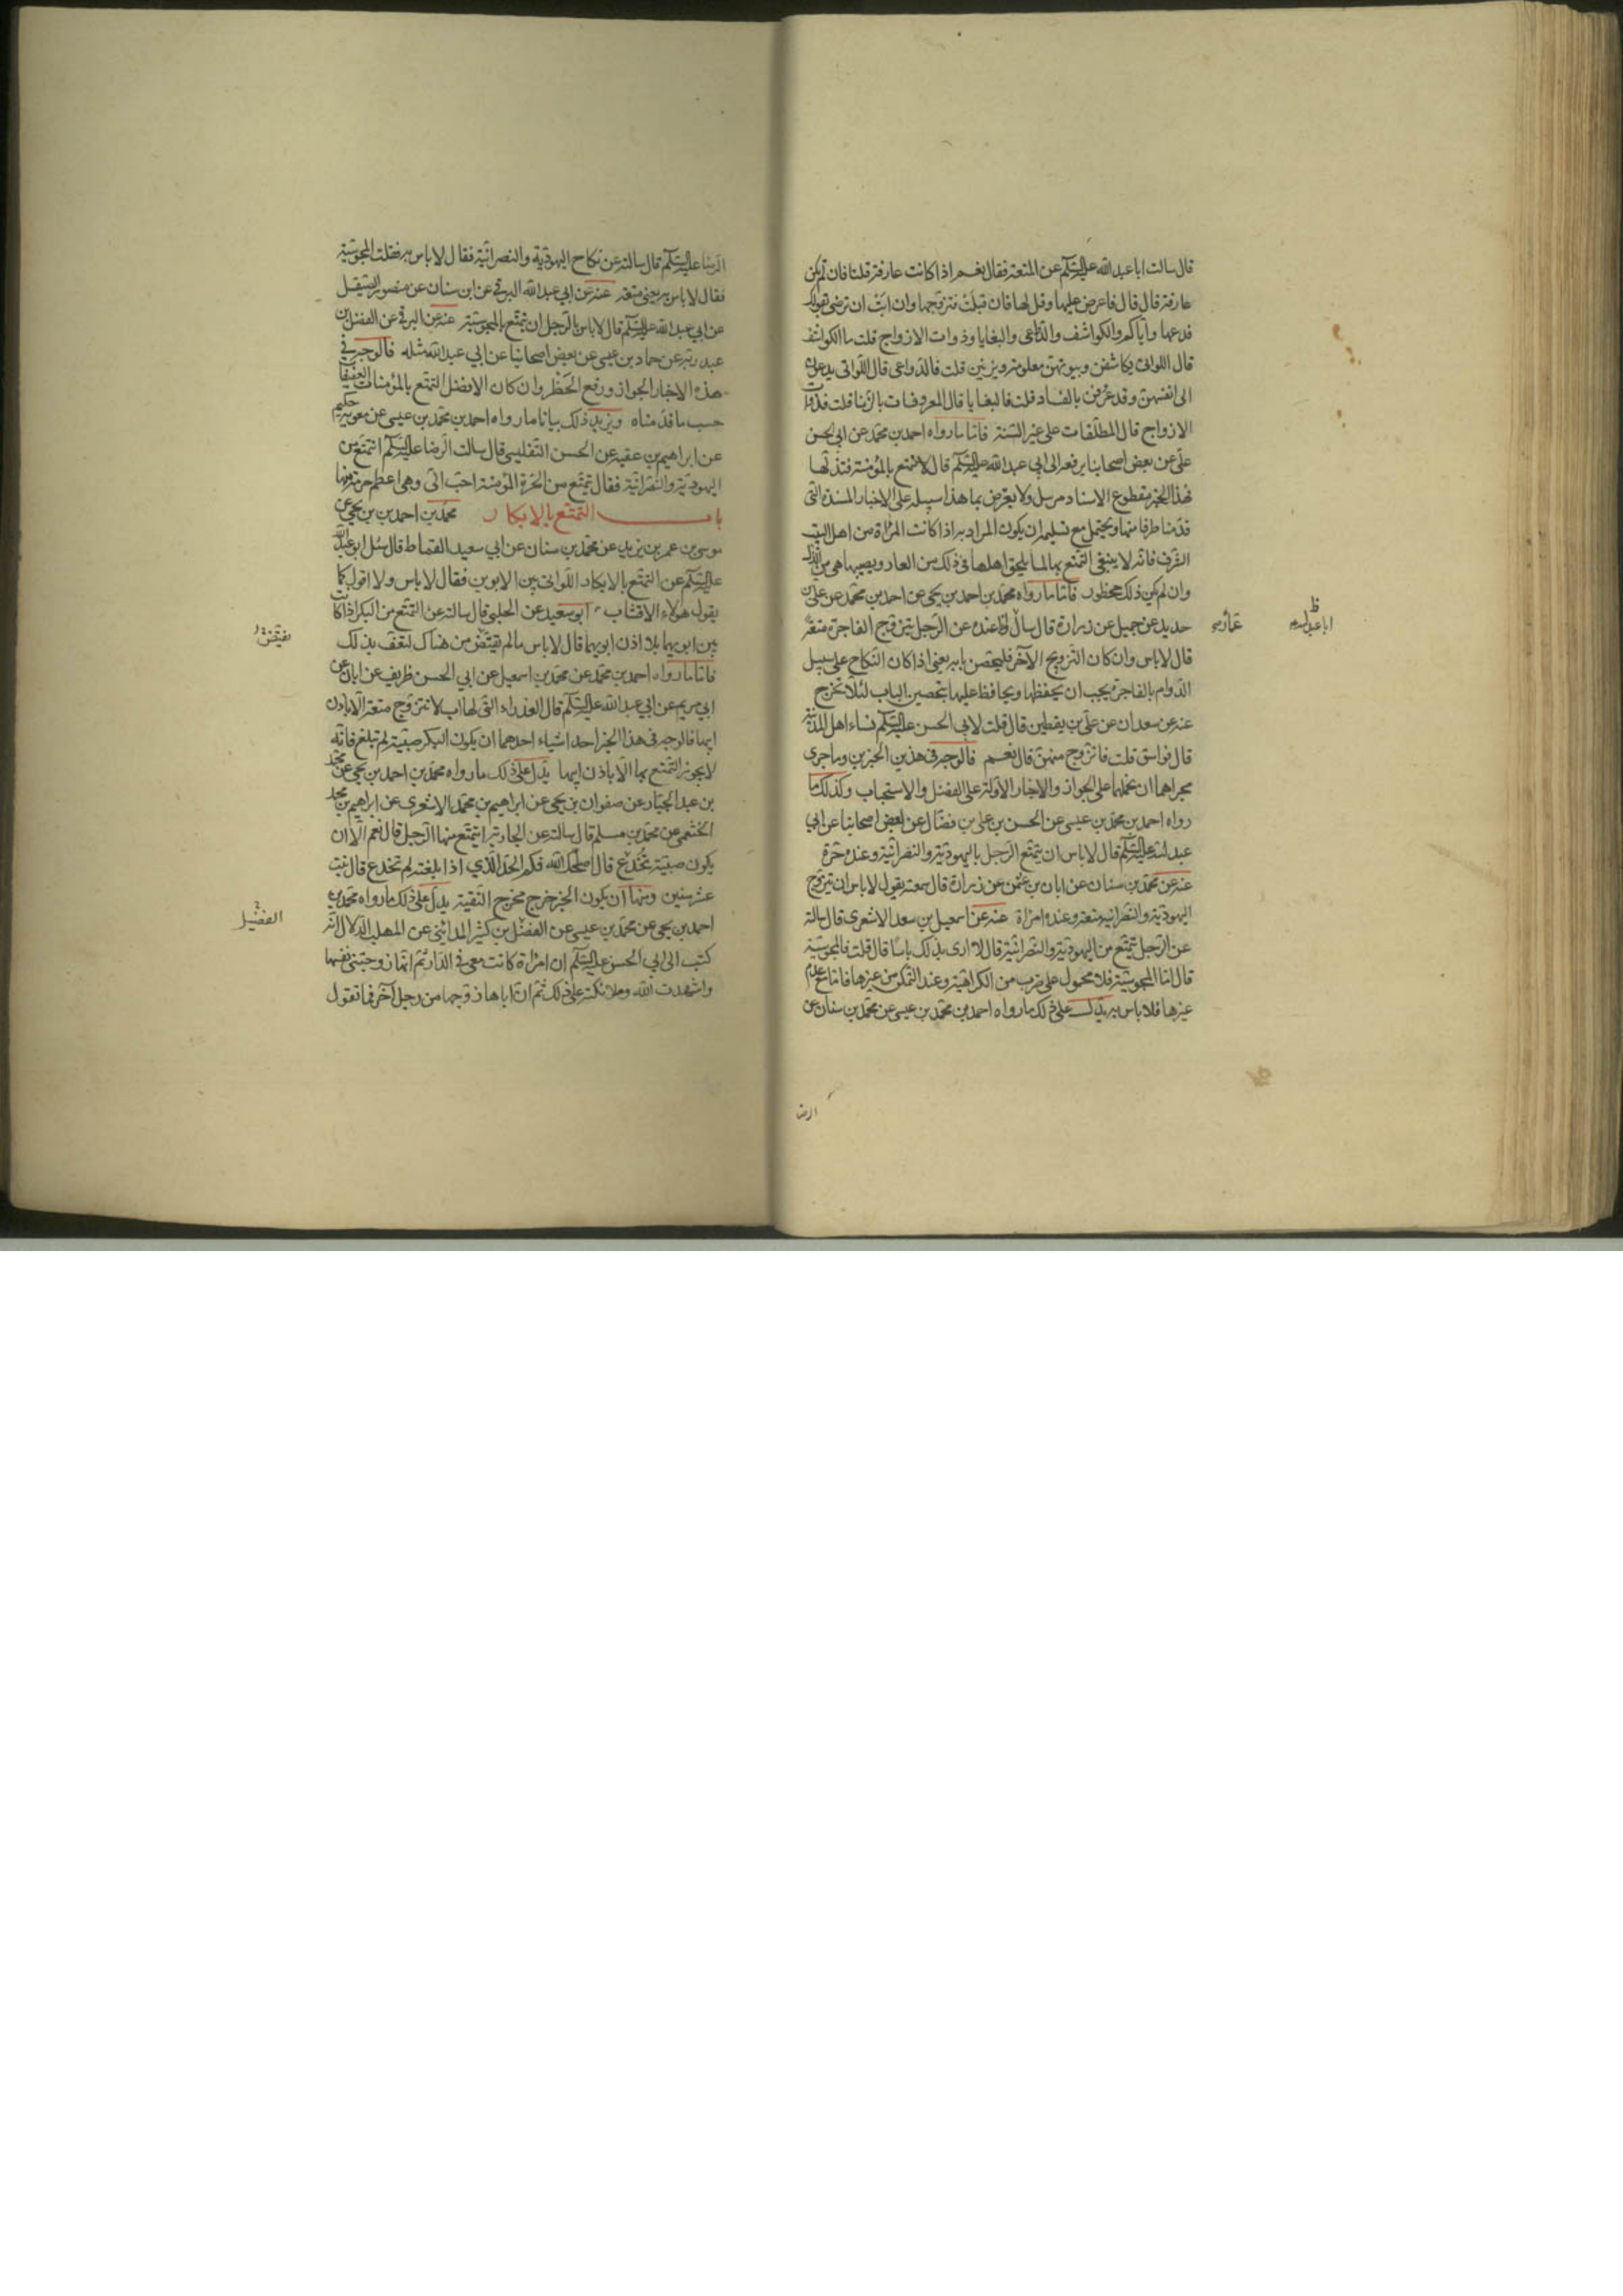 قال سالت ابا عبد الله عليه السلام عن المتعة فقال نعم اذا كانت عارفة قلنا فان لم تكن
عارفة قال قال فاعرض عليها وقل لها فان قبلت فتزوجها وان ابت ان ترضى بقولك
فدعها واياكم والكواشف والدواعى والبغايا وذوات الازواج قلت ما الكواشف
قال اللواتى يكاشفن وبيوتهن معلومة ويزنين قلت فالدواعى قال اللواتى يدعون
الى انفسهن وقد عرفن بالفساد قلت فالبغايا قال المعروفات بالزنا قلت فذوات
الازواج قال المطلقات على غير السنة فاما ما رواه احمد بن محمد عن ابى الحسن
على عن بعض اصحابنا يرفعه الى ابى عبد الله عليه السلام قال لا تتمتع بالمؤمنة فتذلها
فهذا الخبر مقطوع الاسناد مرسل ولا يعترض بما هذا سبيله على الاخبار المسندة التى
قدمنا طرفا منها ويحتمل مع تسليمه ان يكون المراد به اذا كانت المرأة من اهل البيت
الشرف فانه لا ينبغى التمتع بها لما يلحق اهلها فى ذلك من العار ويصيبها هى من الذل
وان لم يكن ذلك محظور فاما ما رواه محمد بن احمد بن يحيى عن احمد بن محمد عن على بن
حديد عن جميل عن زرارة قال سال وانا عنده عن الرجل يتزوج الفاجرة متعة
قال لا باس وان كان التزويج الآخر فليحصن بابه يعنى اذا كان النكاح على سبيل
الدوام بالفاجرة يجب ان يحفظها ويحافظ عليها بتحصين الباب لئلا تخرج
عنه عن سعدان عن على بن يقطين قال قلت لابى الحسن عليه السلام نساء اهل المدينة
قال فواسق قلت فاتزوج منهن قال نعم فالوجه فى هذين الخبرين وما جرى
مجراهما ان نحملها على الجواز والاخبار الاولة على الفضل والاستحباب وكذلك ما
رواه احمد بن محمد بن عيسى عن الحسن بن على بن فضال عن بعض اصحابنا عن ابى
عبد الله عليه السلام قال لا باس ان يتمتع الرجل باليهودية والنصرانية وعنده حرة
عنه عن محمد بن سنان عن ابان بن عثمن عن زرارة قال سمعته يقول لا باس ان يتزوج
اليهودية والنصرانية متعة وعنده امراة عنه عن اسمعيل بن سعد الاشعرى قال سالته
عن الرجل يتمتع من اليهودية والنصرانية قال لا ارى بذلك باسا قال قلت فالمجوسية
قال اما المجوسية فلا محمول على ضرب من الكراهية وعند التمكن من غيرها فاما مع عدم
غيرها فلا باس به يدل على ذلك ما رواه احمد بن محمد بن عيسى عن محمد بن سنان عن
الرضا
الرضا عليه السلام قال سالته عن نكاح اليهودية والنصرانية فقال لا باس به فقلت المجوسية
فقال لا باس به يعنى متعة عنه عن ابى عبد الله البرقى عن ابن سنان عن منصور الصيقل
عن ابى عبد الله عليه السلام قال لا باس بالرجل ان يتمتع بالمجوسية عنه عن البرقى عن الفضل بن
عبد ربه عن حماد بن عيسى عن بعض اصحابنا عن ابى عبد الله مثله فالوجه فى
هذه الاخبار الجواز ورفع الحظر وان كان الافضل التمتع بالمؤمنات العفيفات
حسب ما قدمناه ويزيد ذلك بيانا ما رواه احمد بن محمد بن عيسى عن معوية بن حكيم
عن ابراهيم بن عقبة عن الحسن التفليسى قال سالت الرضا عليه السلام اتمتع من
اليهودية والنصرانية فقال تمتع من الحرة المؤمنة احب الى وهى اعظم حرمة منها
باب التمتع بالابكار محمد بن احمد بن يحيى عن
موسى بن عمر بن يزيد عن محمد بن سنان عن ابى سعيد القماط قال سئل ابو عبد الله
عليه السلام عن التمتع بالابكار اللواتى بين الابوين فقال لا باس ولا اقول كما
يقول هؤلاء الاقشاب ابو سعيد عن الحلبى قال سالته عن التمتع من البكر اذا كانت
بين ابويها بلا اذن ابويها قال لا باس ما لم يقتض من هناك لتعف بذلك
فاما ما رواه احمد بن محمد عن محمد بن اسمعيل عن ابى الحسن ظريف عن ابان عن
ابى مريم عن ابى عبد الله عليه السلام قال العذراء التى لها اب لا تتزوج متعة الا باذن
ابيها فالوجه فى هذا الخبر احد اشياء احدهما ان يكون البكر صبية لم تبلغ فانه
لا يجوز التمتع بها الا باذن ابيها يدل على ذلك ما رواه محمد بن احمد بن يحيى عن محمد
بن عبد الجبار عن صفوان بن يحيى عن ابراهيم بن محمد الاشعرى عن ابراهيم بن محمد
الخثعمى عن محمد بن مسلم قال سالته عن الجارية ايتمتع منها الرجل قال نعم الا ان
يكون صبية تخدع قال اصلحك الله فكم الحد الذى اذا بلغته لم تخدع قال بنت
عشر سنين ومنها ان يكون الخبر خرج مخرج التقية يدل على ذلك ما رواه محمد بن
احمد بن يحيى عن محمد بن عيسى عن الفضل بن كثير المدائنى عن المهلب الدلال انه
كتب الى ابى الحسن عليه السلام ان امراة كانت معى فى الدار ثم انها زوجتنى نفسها
واشهدت الله وملائكته على ذلك ثم ان اباها زوجها من رجل آخر فما تقول
الفضيل